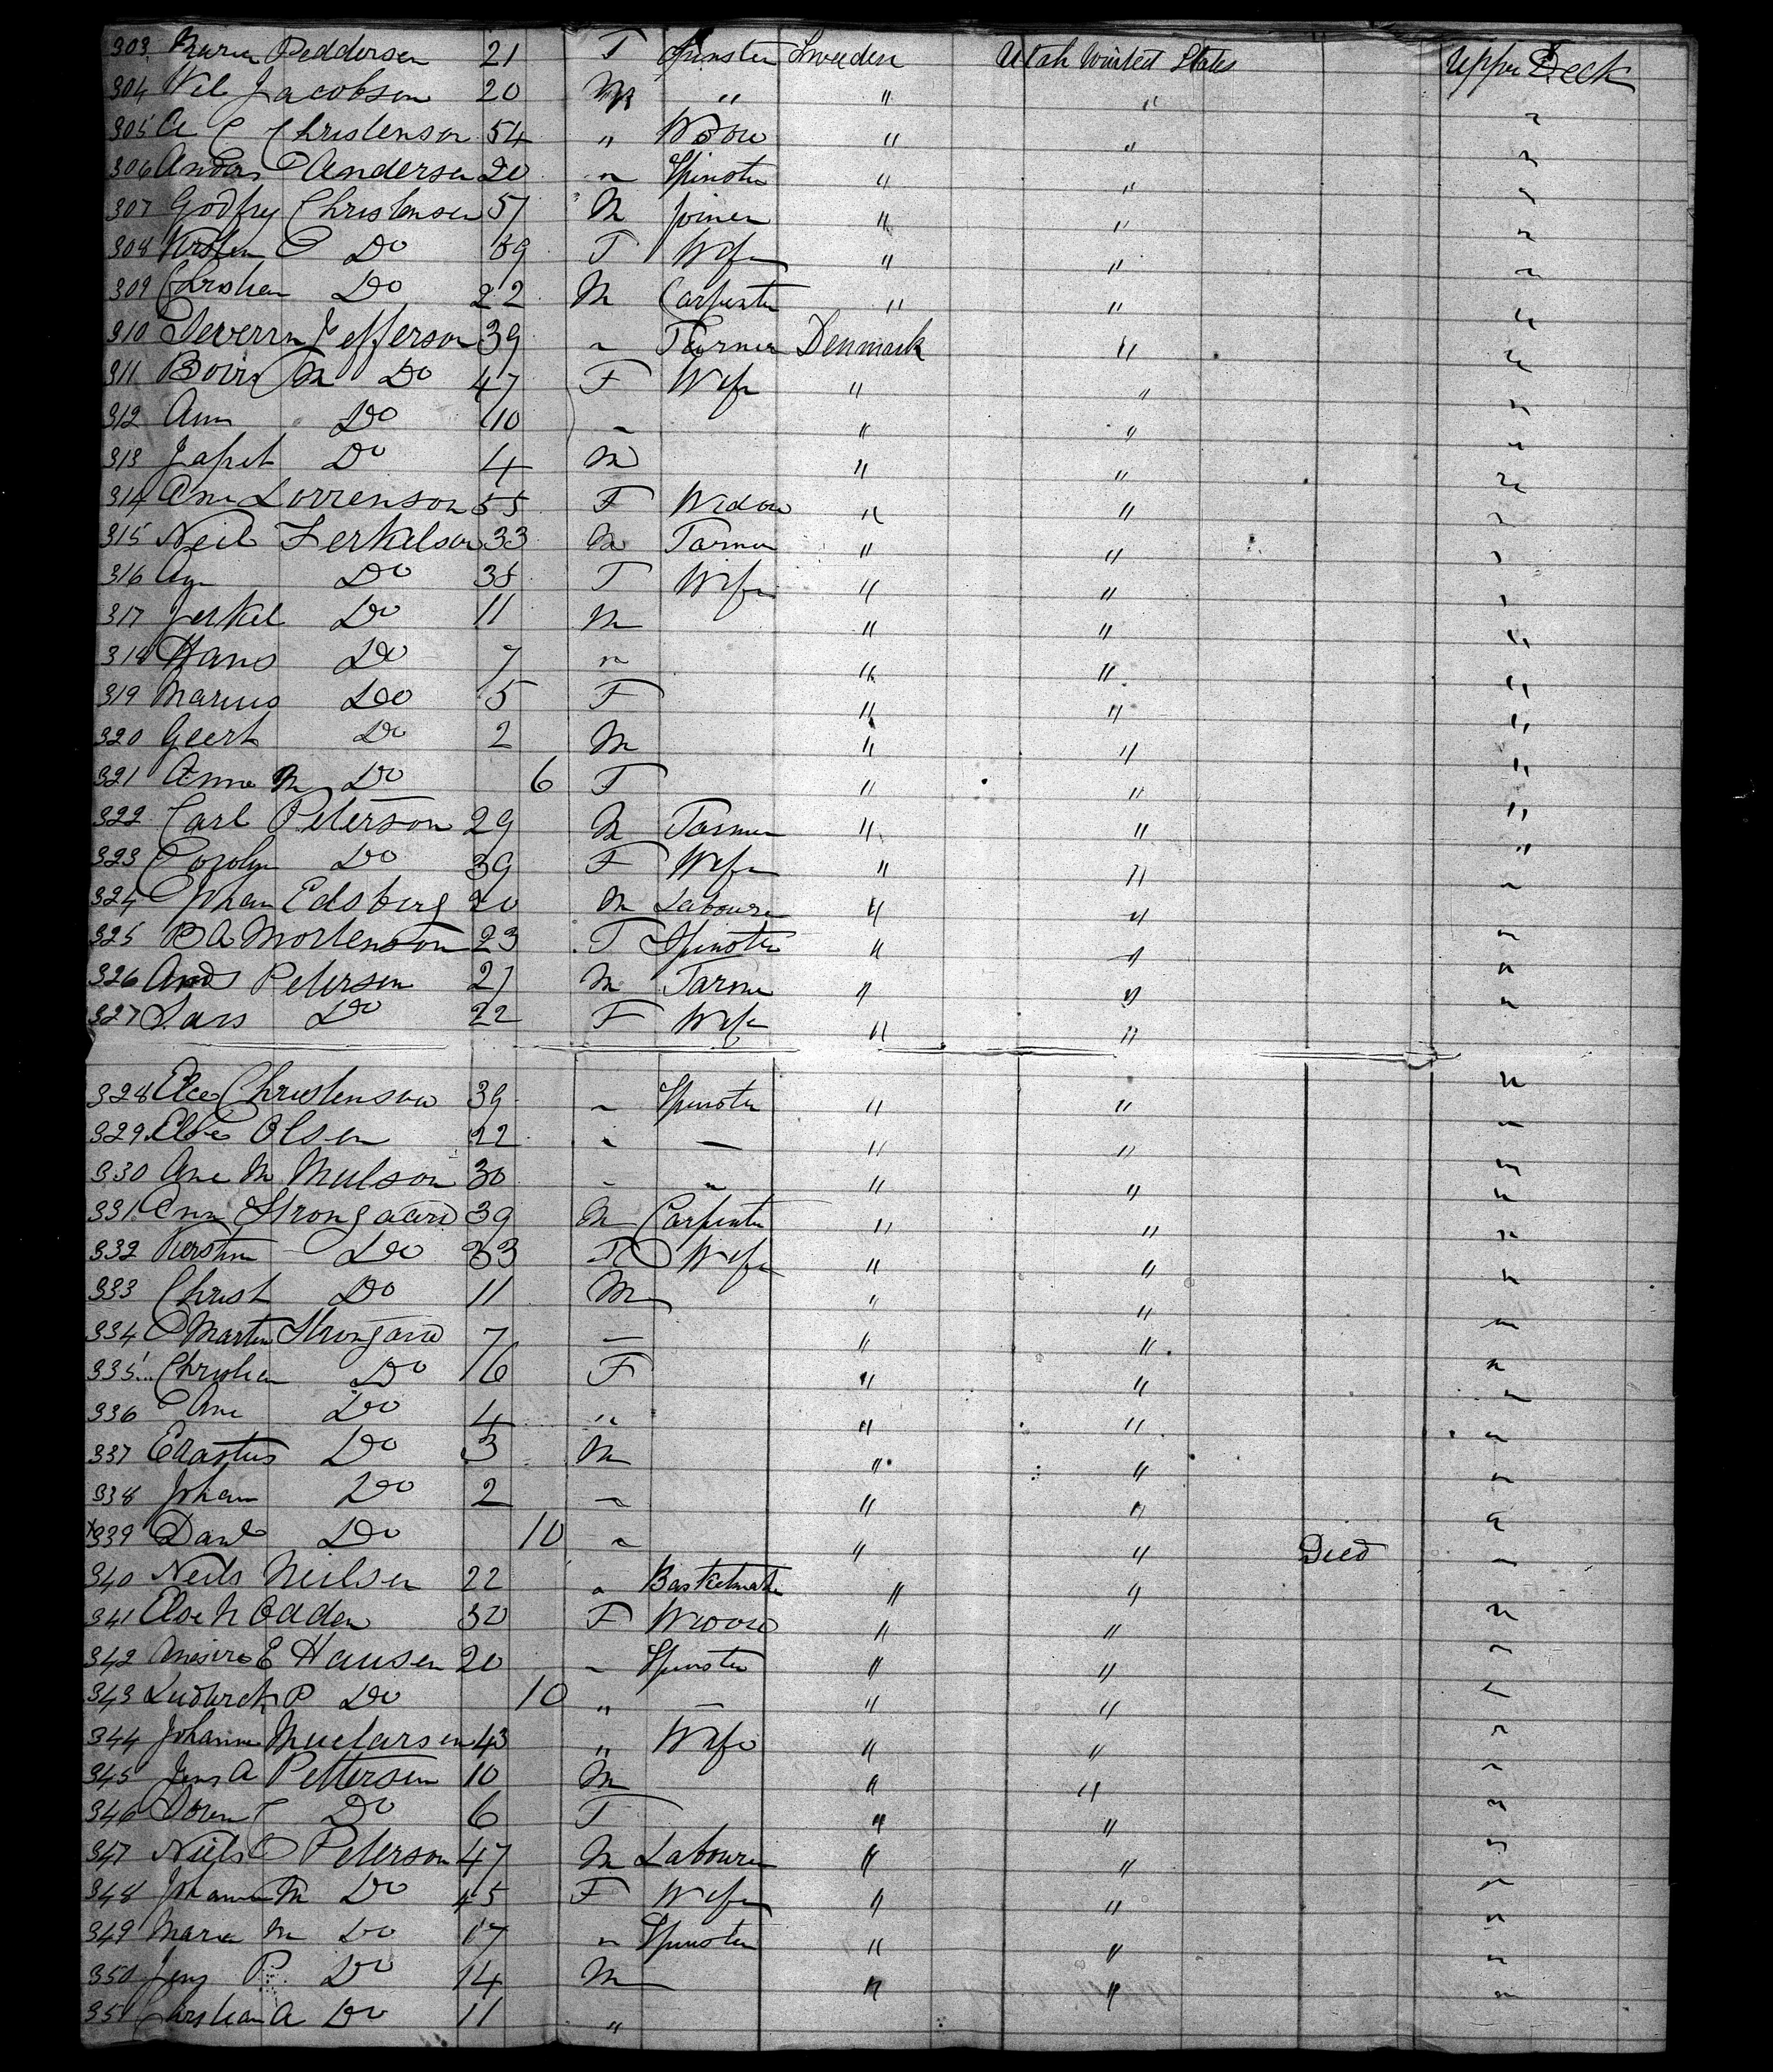 303 Maria Peddersen 21 F Spinster Sweeden Utah United States Upper Deck
304 Nel Jacobsen 20 M " " " "
305 A C Christenson 54 " Widow " " "
306 Anders Andersen 20 " Spinster " " "
307 Godfrey Christensen 57 M Joiner " " "
308 Kirsten Do 39 F Wife " " "
309 Christian Do 22 M Carpenter " " "
310 Severrn Jefferson 39 " Farmer Denmark " "
311 M Do 47 F Wife " " "
312 Ann Do 10 " " " "
313 Japet Do 4 M " " "
314 Ane Lorrenson 55 F Widow " " "
315 Neil Jerkelson 33 M Farmer " " "
316 Do 38 F Wife " " "
317 Jerkel Do 11 M " " "
318 Hans Do 7 " " " "
319 Marius Do 5 F " " "
320 Geert Do 2 M " " "
321 Anne M Do 6 F " " "
322 Carl Peterson 29 M Farmer " " "
323 Corolyn Do 39 F Wife " " "
324 Johan Edsberg 20 M Labourer " " "
325 B A Mortenson 23 F Spinster " " "
326 And Petersen 27 M Farmer " " "
327 Lars Do 22 F Wife " " "
328 Elce Christenson 39 " Spinster " " "
329 Else Olsen 22 " — " " "
330 Ane M Mulson 30 " " " " "
331 Strongaard 39 M Carpenter " " "
332 Kerstin Do 33 F Wife " " "
333 Christ Do 11 M " " "
334 Martin Strongard 7 — " " "
335 Christian Do 6 F " " "
336 Ane Do 4 " " " "
337 Erastus Do 3 M " " "
338 Johan Do 2 " " " "
x339 Danl Do 10 " " " Died "
340 Neils Neilsen 22 " Basketmaker " " "
341 Else N Odden 30 F Widow " " "
342 E Hansen 20 " Spinster " " "
343 P Do 10 " — " " "
344 Johanne 43 " Wife " " "
345 Jens A Pettersen 10 M " " "
346 Soren Do 6 F " " "
347 Niels Peterson 47 M Labourer " " "
348 Johanne M Do 45 F Wife " " "
349 Maria M Do 17 " Spinster " " "
350 Jens P. Do 14 M " " "
351 Christian A Do 11 "